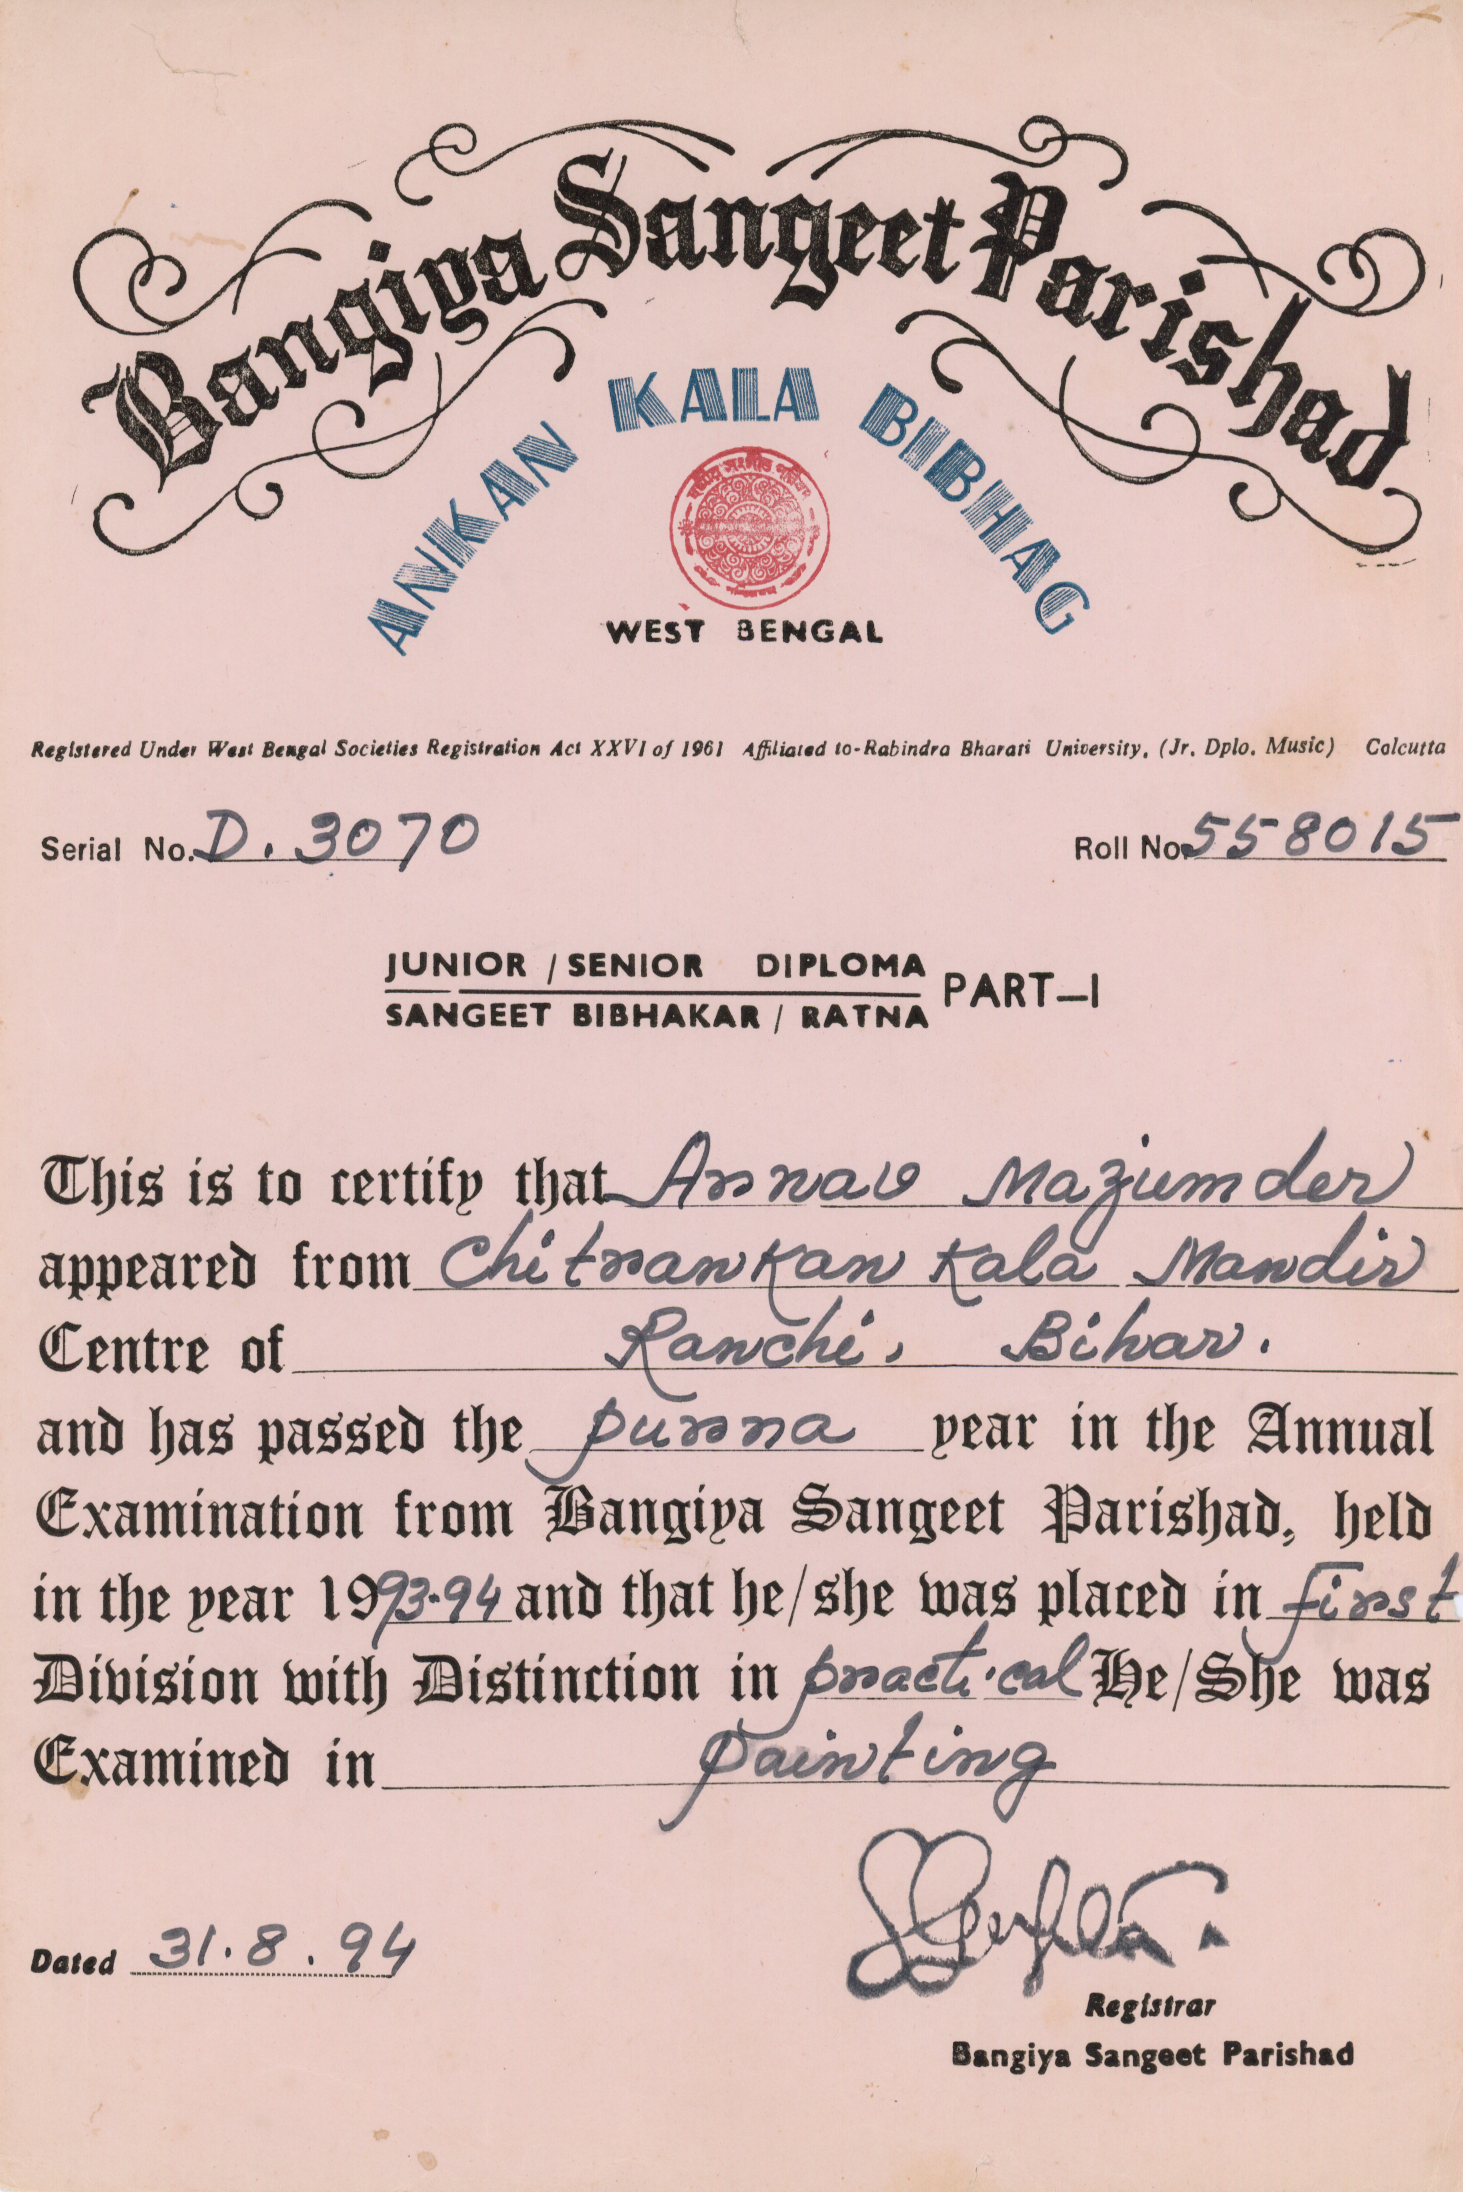 Bangiya Sangeet Parishad
ANKAN KALA BIBHAG
বঙ্গীয় সংগীত পরিষদ
WEST BENGAL
Registered Under West Bengal Societies Registration Act XXVI of 1961 Affiliated to-Rabindra Bharati University, (Jr. Dplo. Music) Calcutta
Serial No. D. 3070 Roll No. 558015
JUNIOR / SENIOR DIPLOMA
SANGEET BIBHAKAR / RATNA PART-I
This is to certify that Arnav Mazumder
appeared from Chitrankan Kala Mandir
Centre of Ranchi, Bihar.
and has passed the purna year in the Annual
Examination from Bangiya Sangeet Parishad, held
in the year 1993-94 and that he/she was placed in first
Division with Distinction in practical He/She was
Examined in painting
Dated 31.8.94
Registrar
Bangiya Sangeet Parishad